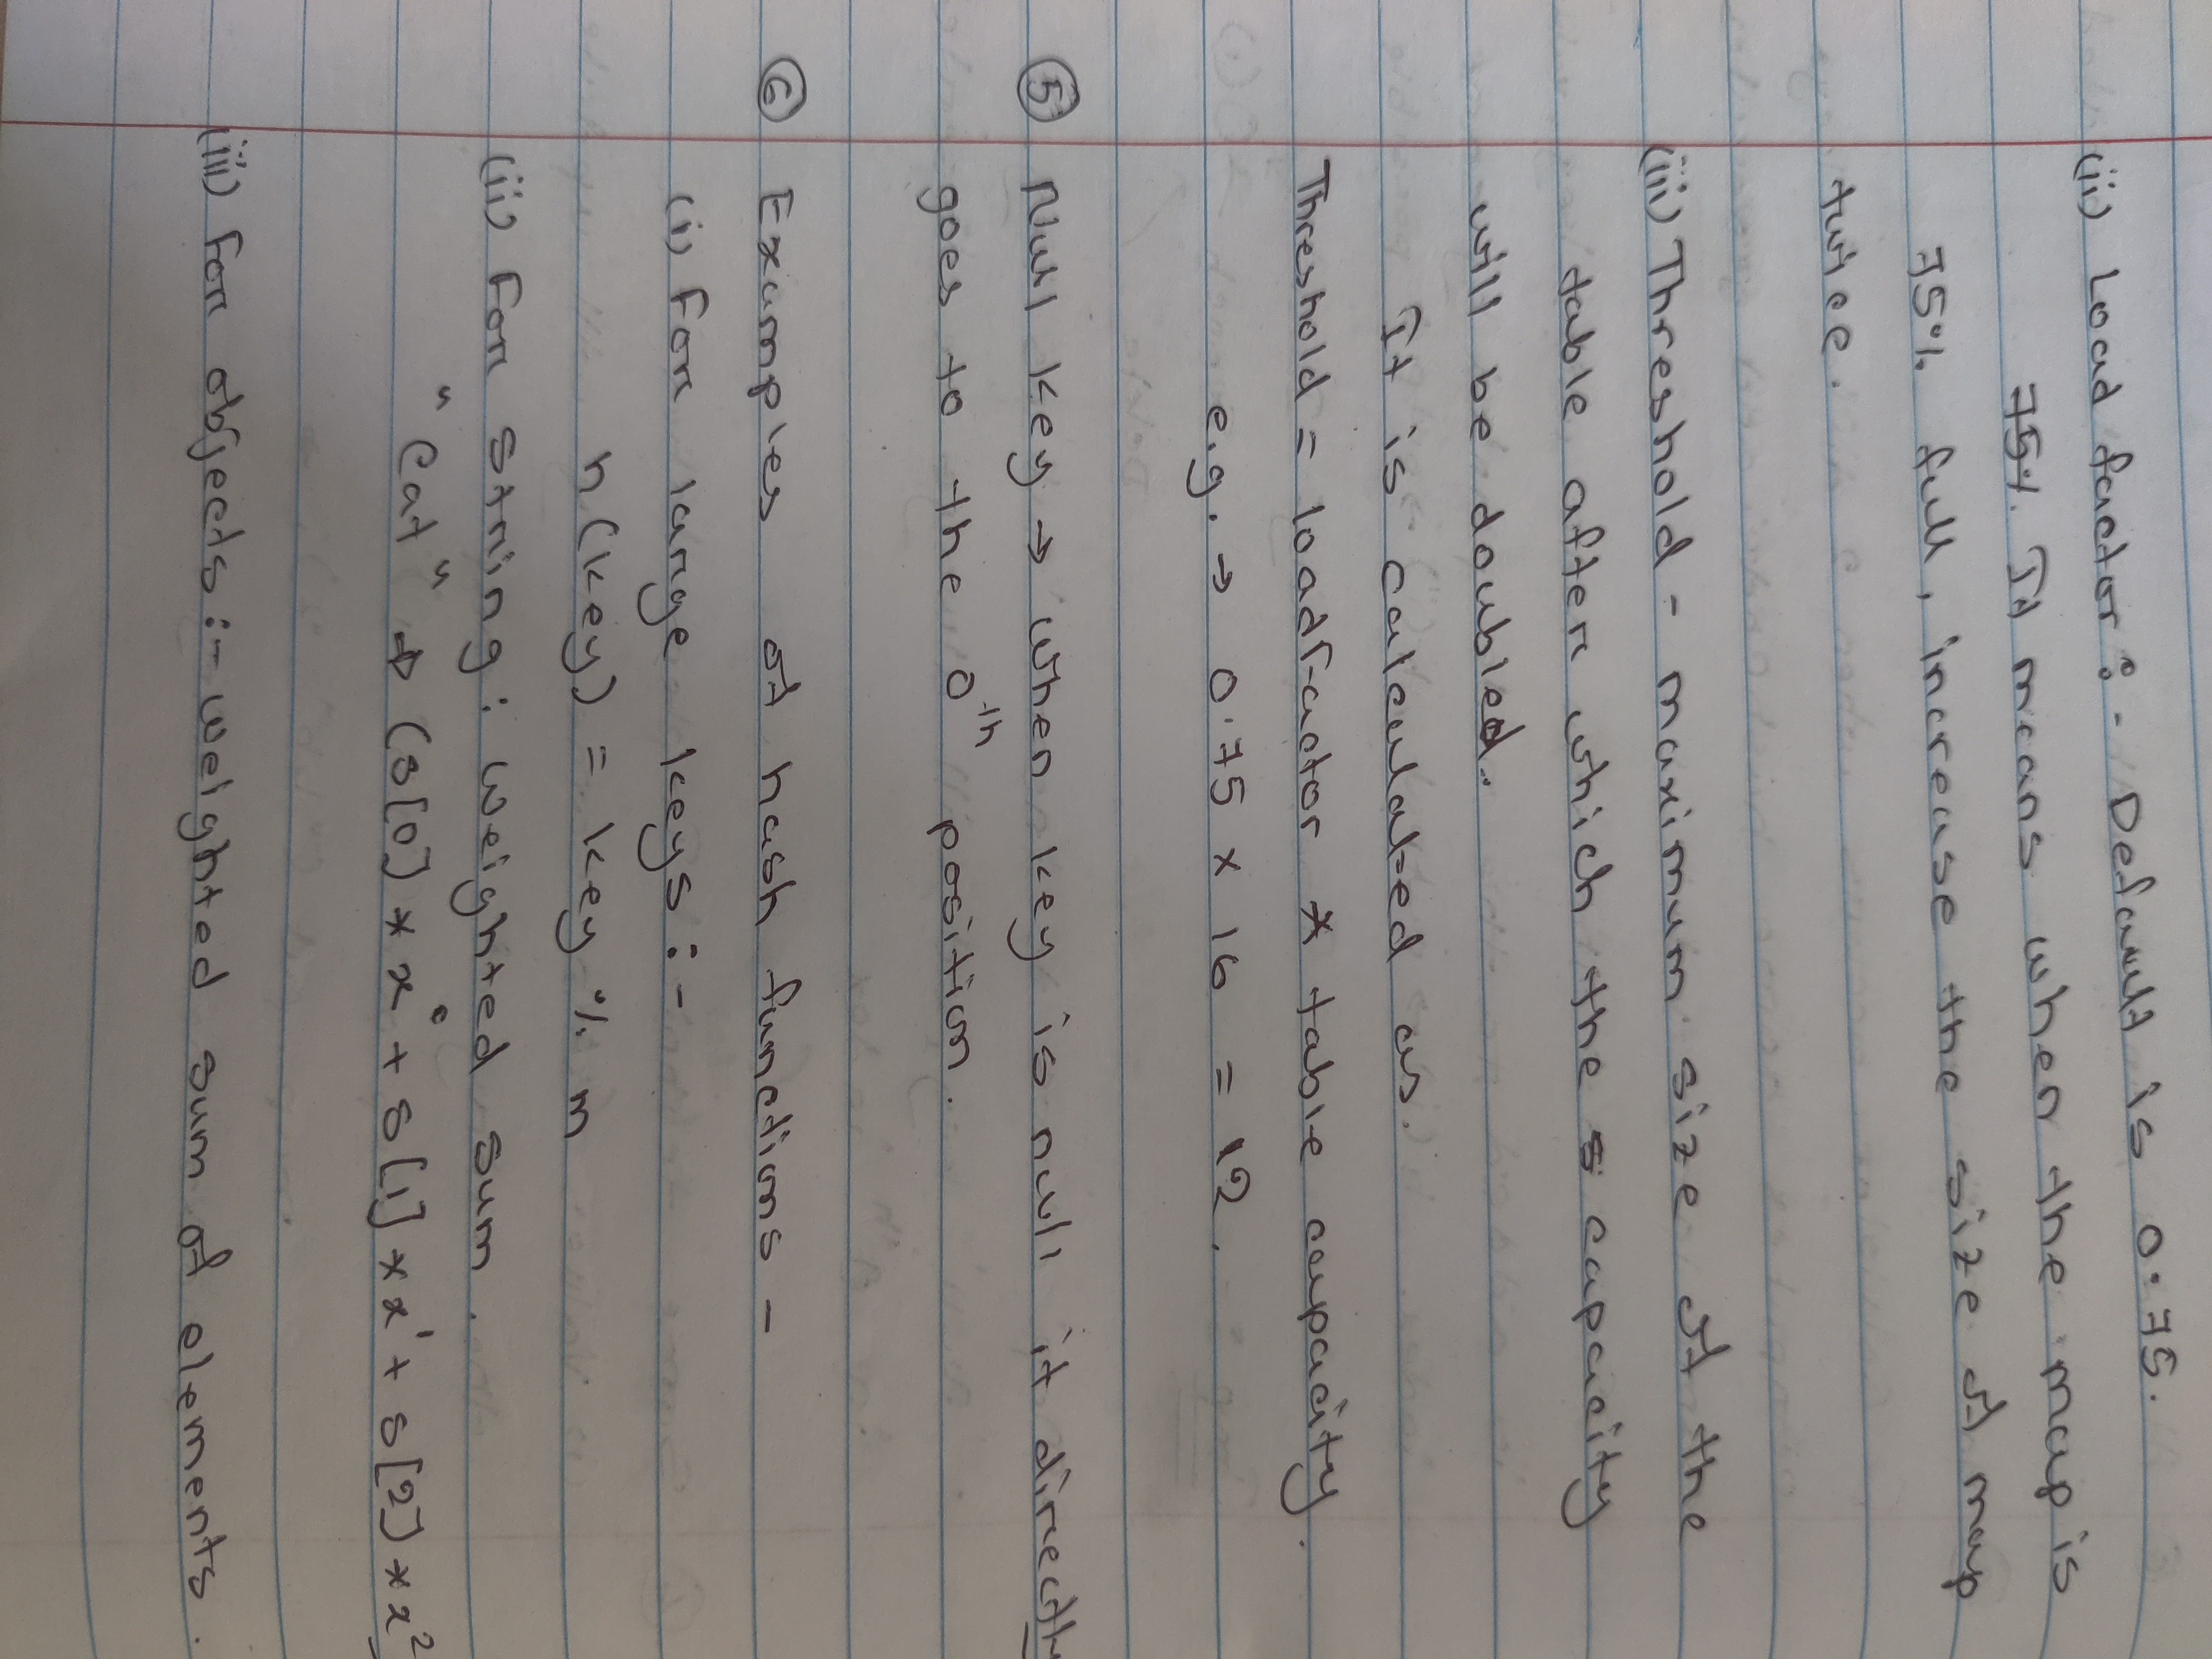 (ii) Load factor :- Default is 0.75.
75%. It means when the map is
75% full, increase the size of map
twice.
(iii) Threshold - maximum size of the
table after which the capacity
will be doubled.
It is calculated as.
Threshold = loadfactor * table capacity.
e.g. → 0.75 x 16 = 12.
⑤ Null key → when key is null it directly
goes to the 0th position.
⑥ Examples of hash functions -
(i) For large keys :-
h(key) = key % m
(ii) For string : weighted sum.
"Cat" → (s[0] * x⁰ + s[1] * x¹ + s[2] * x²
(iii) For objects :- weighted sum of elements.